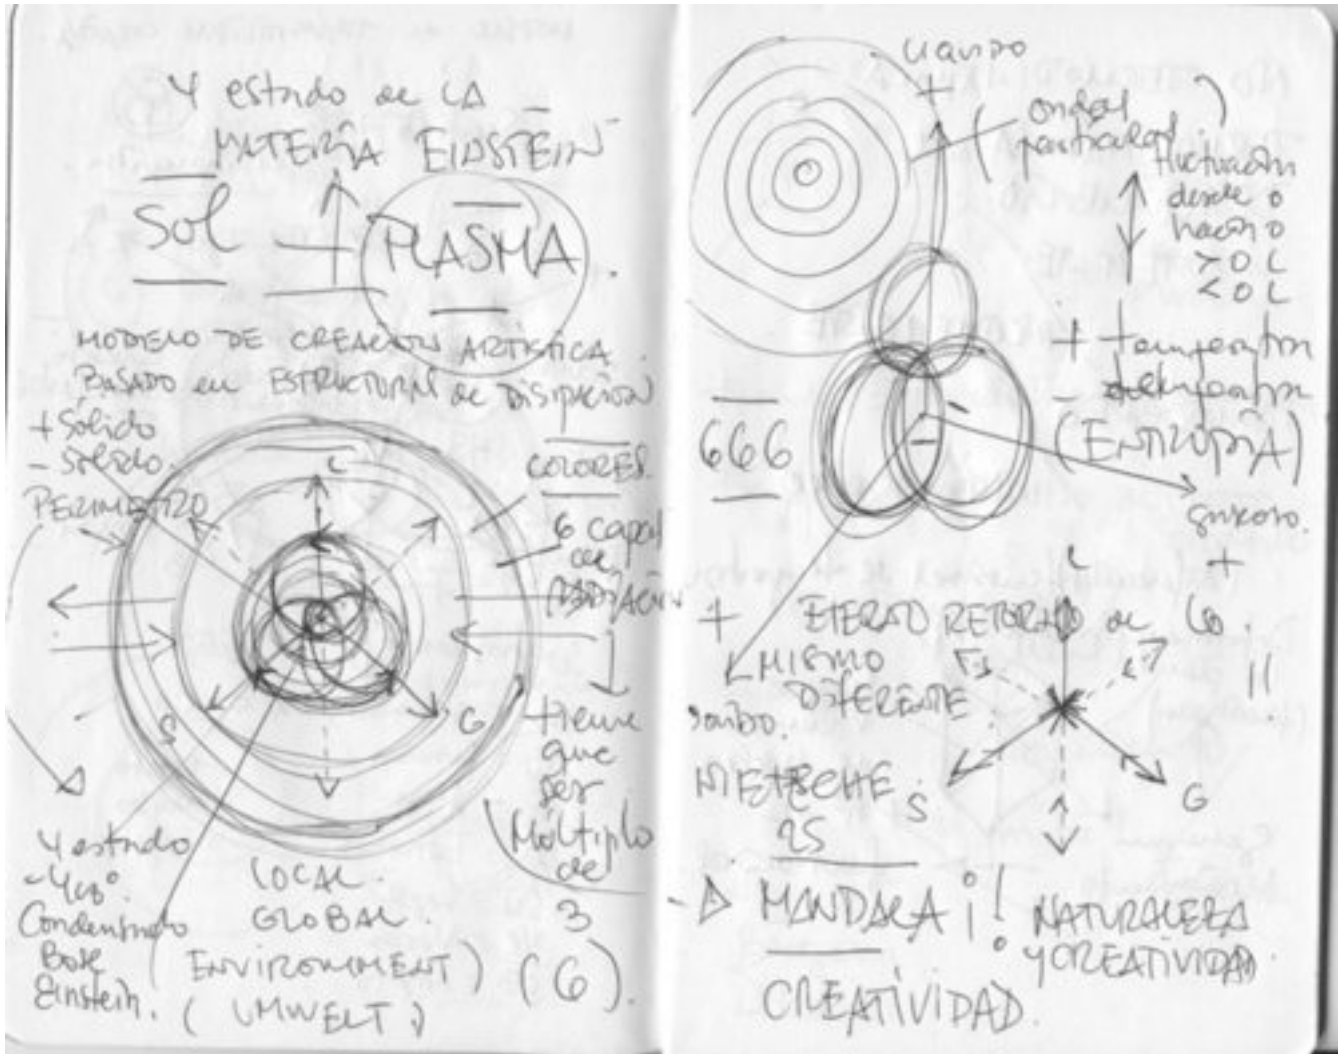 4 estado de LA
MATERIA EINSTEIN
Sol
PLASMA.
MODELO DE CREACIÓN ARTÍSTICA.
BASADO en ESTRUCTURAS de DISIPACIÓN
+ Sólido
- sólido.
PERIMETRO
COLORES.
6 capas
de
RADIACIÓN
tiene
que
ser
Múltiplo
de
3
(6).
L
S
G
4 estado
Condensado
Bose
Einstein.
LOCAL.
GLOBAL.
ENVIRONMENT)
(UMWELT)
+
(ondas
partículas)
fluctuación
desde o
hacia o
> 0 L
< 0 L
+ temperatura
(ENTROPÍA)
666
-
-
gaseoso.
+
+
L
ETERNO RETORNO de LO
MISMO
DIFERENTE.
S
G
NIETZCHE.
MANDALA ¡!
NATURALEZA
Y CREATIVIDAD
CREATIVIDAD.